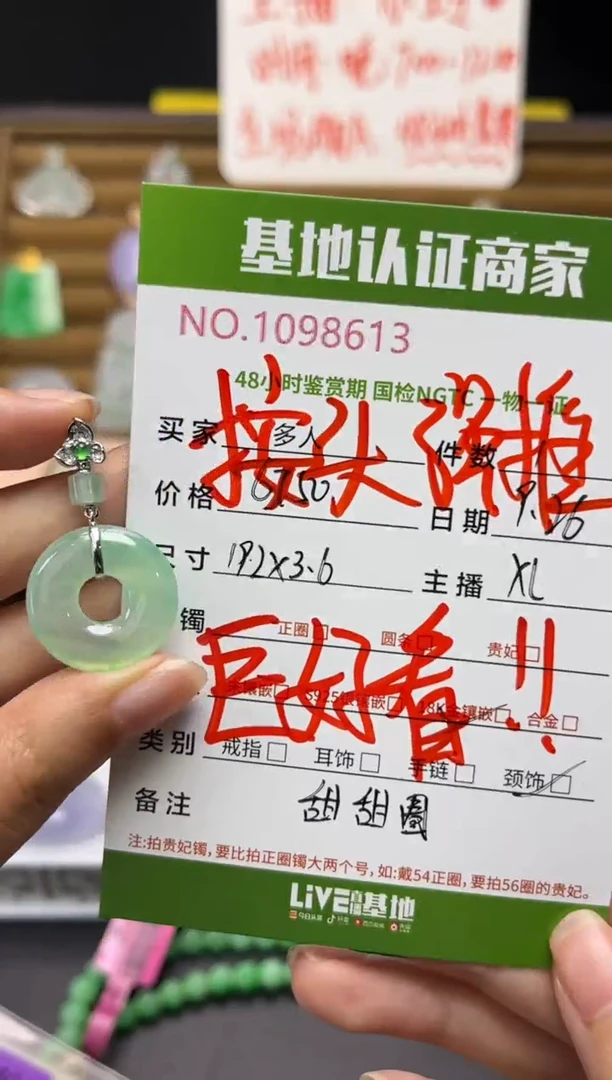 基地认证商家
NO.1098613
48小时鉴赏期 国检NGTC 一物一证
买家 多人 件数 1
接头 强推
价格 6750 日期 9.26
尺寸 19.2×3.6 主播 XL
镯 正圈□ 圆条□ 贵妃□
巨好看!!
未镶嵌□ S925银镶嵌□ 18K金镶嵌□ 合金□
类别 戒指□ 耳饰□ 手链□ 颈饰□
备注 甜甜圈
注:拍贵妃镯,要比拍正圈镯大两个号,如:戴54正圈,要拍56圈的贵妃。
LiVE直播基地
今日头条 抖音 西瓜视频